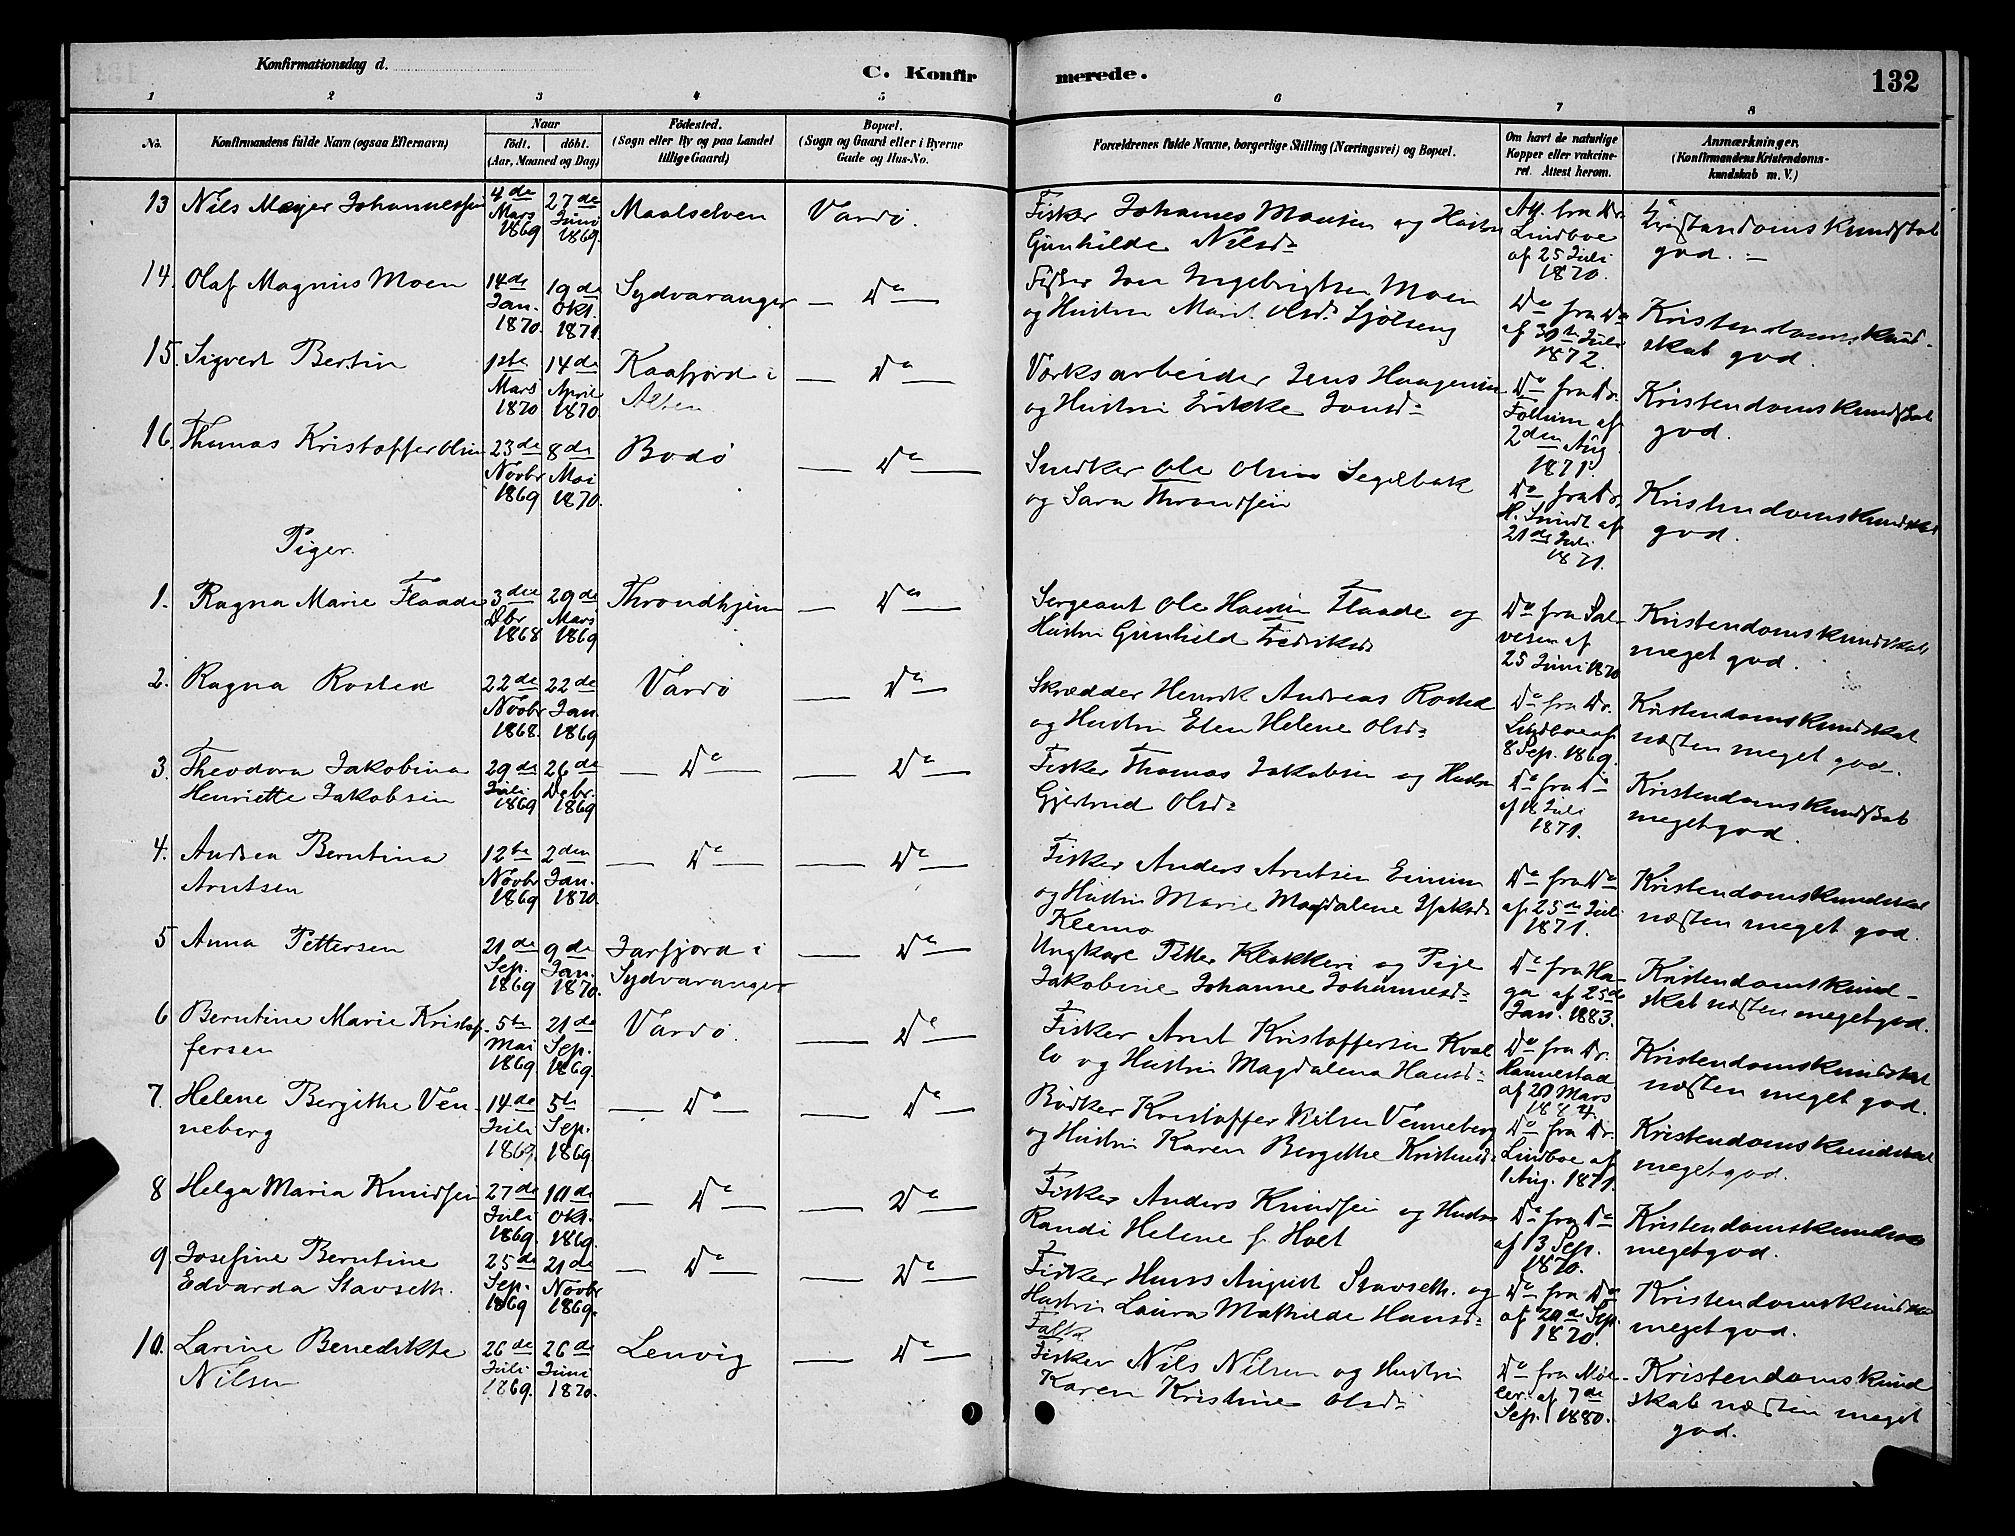 Konfirmationsdag d.
C. Konfirmerede.
132
1 2 3 4 5 6 7 8
No.
Konfirmandens fulde Navn (ogsaa Efternavn)
Naar
født. døbt.
(Aar, Maaned og Dag)
Fødested.
(Sogn eller By og paa Landet
tillige Gaard)
Bopæl.
(Sogn og Gaard eller i Byerne
Gade og Hus-No.
Forældrenes fulde Navne, borgerlige Stilling (Næringsvei) og Bopæl.
Om havt de naturlige
Kopper eller vakcine-
ret. Attest herom.
Anmærkninger.
(Konfirmandens Kristendoms-
kundskab m. V.)
13 Nils Meyer Johannessen 4de Mars 1869 27de Juni 1869. Maalselven Vardø.
Fisker Johannes Monsen og Hustru
Gunhilde Nilsd.
Att. fra Dr.
Lindboe
af 25 Juli
1870.
Kristendomskundskab
god.
14. Olaf Magnus Moen 14de Jan. 1870. 19de Okt. 1871. Sydvaranger Do
Fisker Jon Ingebrigtsen Moen
og Hustru Marit Olsd. Sjølseng
Do fra Do
af 30te Juli
1872.
Kristendomskund-
skab god.
15. Sigvert Bertin 1ste Mars 1870 14de April 1870. Kaafjord i Alten Do
Værksarbeider Jens Haagensen
og Hustru Erikke Jonsd.
Do fra Dr.
Follum af
2den Aug.
1871.
Kristendomskundskab
god.
16. Thomas Kristoffer Olsen 23de Novbr 1869 8de Mai 1870. Bodø Do
Snedker Ole Olsen Segelbak
og Sara Throndsen
Do fra Dr.
H. Smidt af
21de Juli
1871.
Kristendomskundskab
god.
Piger.
1. Ragna Marie Flaade 3die Dbr 1868 29de Mars 1869 Throndhjem Do
Sergeant Ole Hansen Flaade og
Hustru Gunhild Fredriksd.
Do fra Sal-
vesen af
25 Juni 1870
Kristendomskundskab
meget god.
2. Ragna Rosted 22de Novbr 1868. 22de Jan. 1869 Vardø Do
Skrædder Henrik Andreas Rosted
og Hustru Elen Helene Olsd.
Do fra Dr.
Lindboe af
8 Sep. 1869.
Kristendomskundskab
næsten meget god.
3. Theodora Jakobina
Henriette Jakobsen 29de Juli 1869 26de Debr. 1869 Do Do
Fisker Thomas Jakobsen og Hustru
Gjertrud Olsd.
Do fra Do
af 18 Juli
1871.
Kristendomskundskab
meget god.
4. Andrea Berntina
Arntsen 12te Novbr 1869 2den Jan. 1870. Do Do
Fisker Anders Arntsen
og Hustru Marie Magdalene Isaksd.
Klemo
Do fra Do
af 25de Juli
1871.
Kristendomskundskab
næsten meget god.
5 Anna Pettersen 21de Sep. 1869 9de Jan. 1870. Jarfjord i
Sydvaranger Do
Ungkarl Petter Klokkeri og Pige
Jakobine Johanne Johannesd.
Do fra Ha-
ga af 25de
Jan. 1883.
Kristendomskund-
skab næsten meget god.
6 Berntine Marie Kristof-
fersen 5te Mai 1869 21de Sep. 1869. Vardø. Do
Fisker Arnt Kristoffersen Kval-
lo og Hustru Magdalena Hansd.
Do fra Dr.
Hannestad
af 20 Mars
1884.
Kristendomskundskab
næsten meget god.
7. Helene Bergithe Ven-
neberg 14de Juli 1869. 5te Sep. 1869 Do Do
Bødker Kristoffer Nilsen Venneberg
og Hustru Karen Bergithe Kristensd.
Do fra Dr.
Lindboe af
1 Aug. 1871.
Kristendomskundskab
meget god.
8 Helga Maria Knudsen 27de Juli 1869. 10de Okt. 1869. Do Do
Fisker Anders Knudsen og Hustru
Randi Helene f. Holt
Do fra Do
af 13 Sep.
1870.
Kristendomskundskab
meget god.
9. Josefine Berntine
Edvarda Stavseth. 25de Sep. 1869 21de Novbr 1869. Do Do
Fisker Hans August Stavseth. og
Hustru Laura Mathilde Hansd.
Falk
Do fra Do
af 20de Sep.
1870.
Kristendomskundskab
meget god.
10. Larine Benedikte
Nilsen 26de Juli 1869. 26de Juni 1870. Lenvig Do
Fisker Nils Nilsen og Hustru
Karen Kristine Olsd.
Do fra Møl-
ler af 7de
Sep. 1880.
Kristendomskund
skab næsten meget
god.